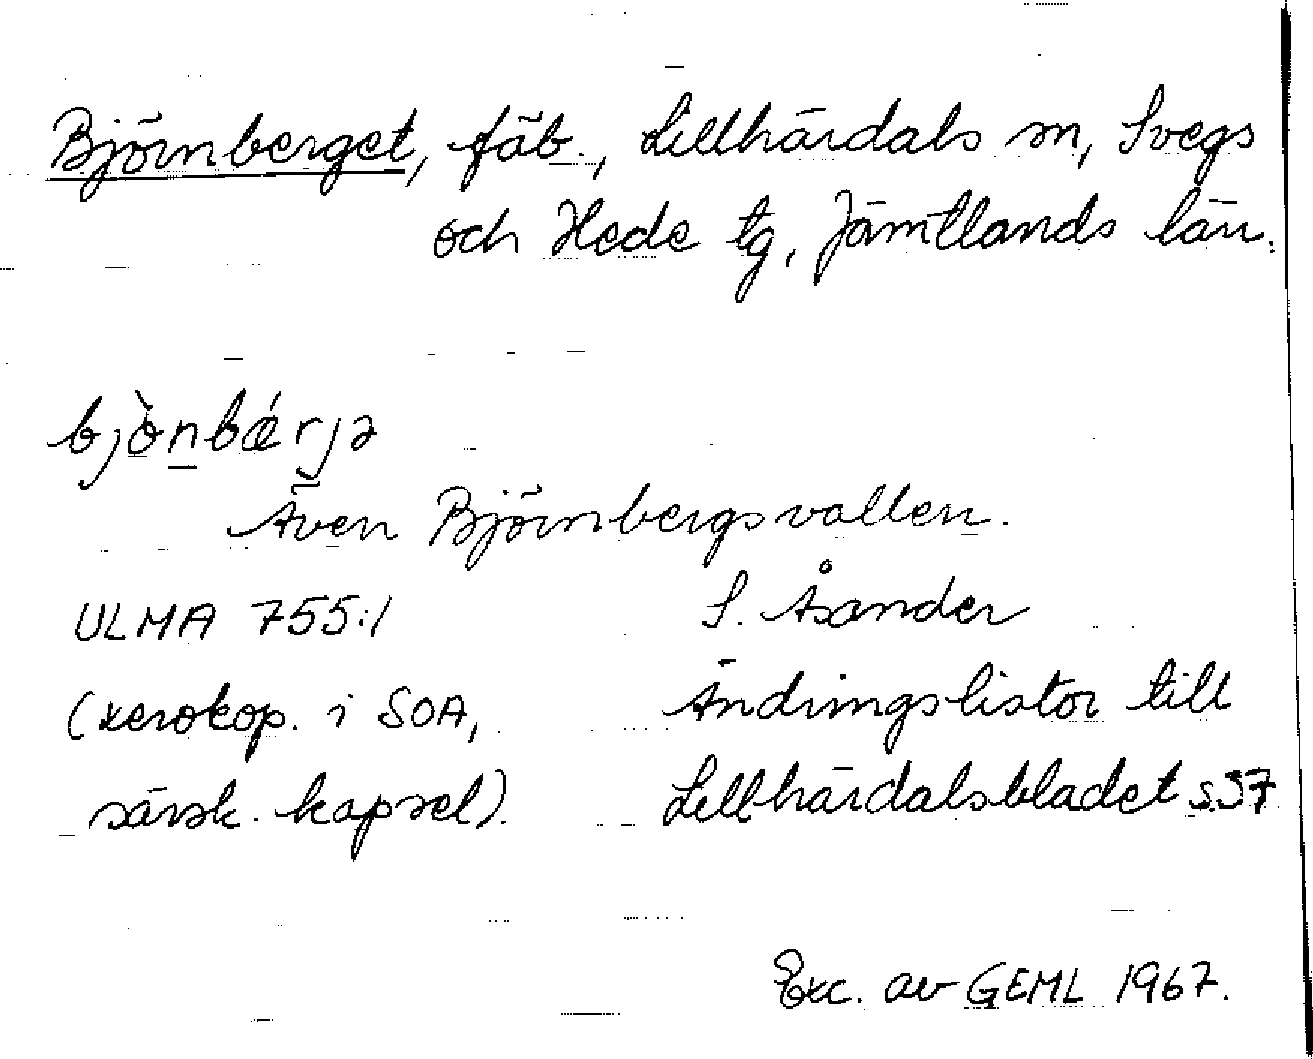 Björnberget, fäb., Lillhärdals sn, Svegs
och Hede tg, Jämtlands län.
bjò̱ṉbǽrjə
Även Björnbergsvallen.
ULMA 755:1 S. Åsander
(xerokop. i SOA, Ändringslistor till
särsk. kapsel). Lillhärdalsbladet s.37
Exc. av GEML 1967.